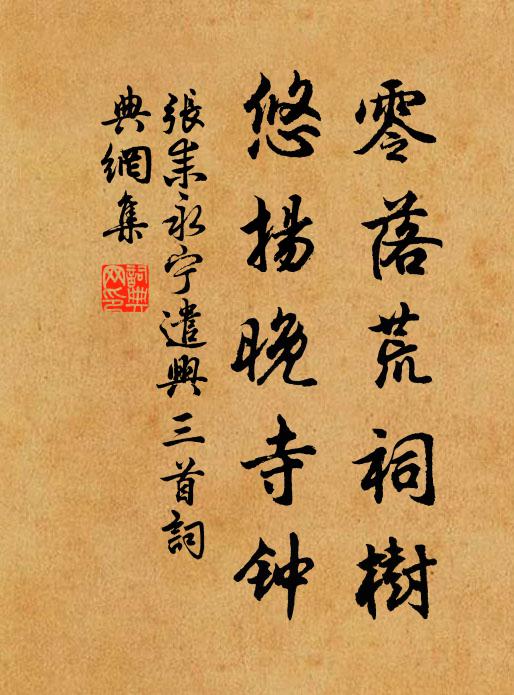 零落荒祠樹
悠揚晚寺钟
張耒永宁遣興三首詞
典網集
詞典网印